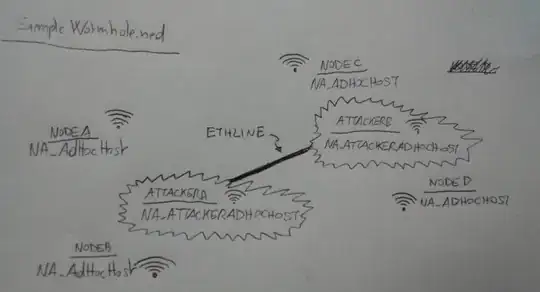 Simple Wormhole.ned
NODE C
NA_ADHOCHOST
NODE A
NA_AdHocHost
ETHLINE
ATTACKER B
NA_ATTACKERADHOCHOST
ATTACKER A
NA_ATTACKERADHOCHOST
NODE D
NA_ADHOCHOST
NODE B
NA_AdHocHost